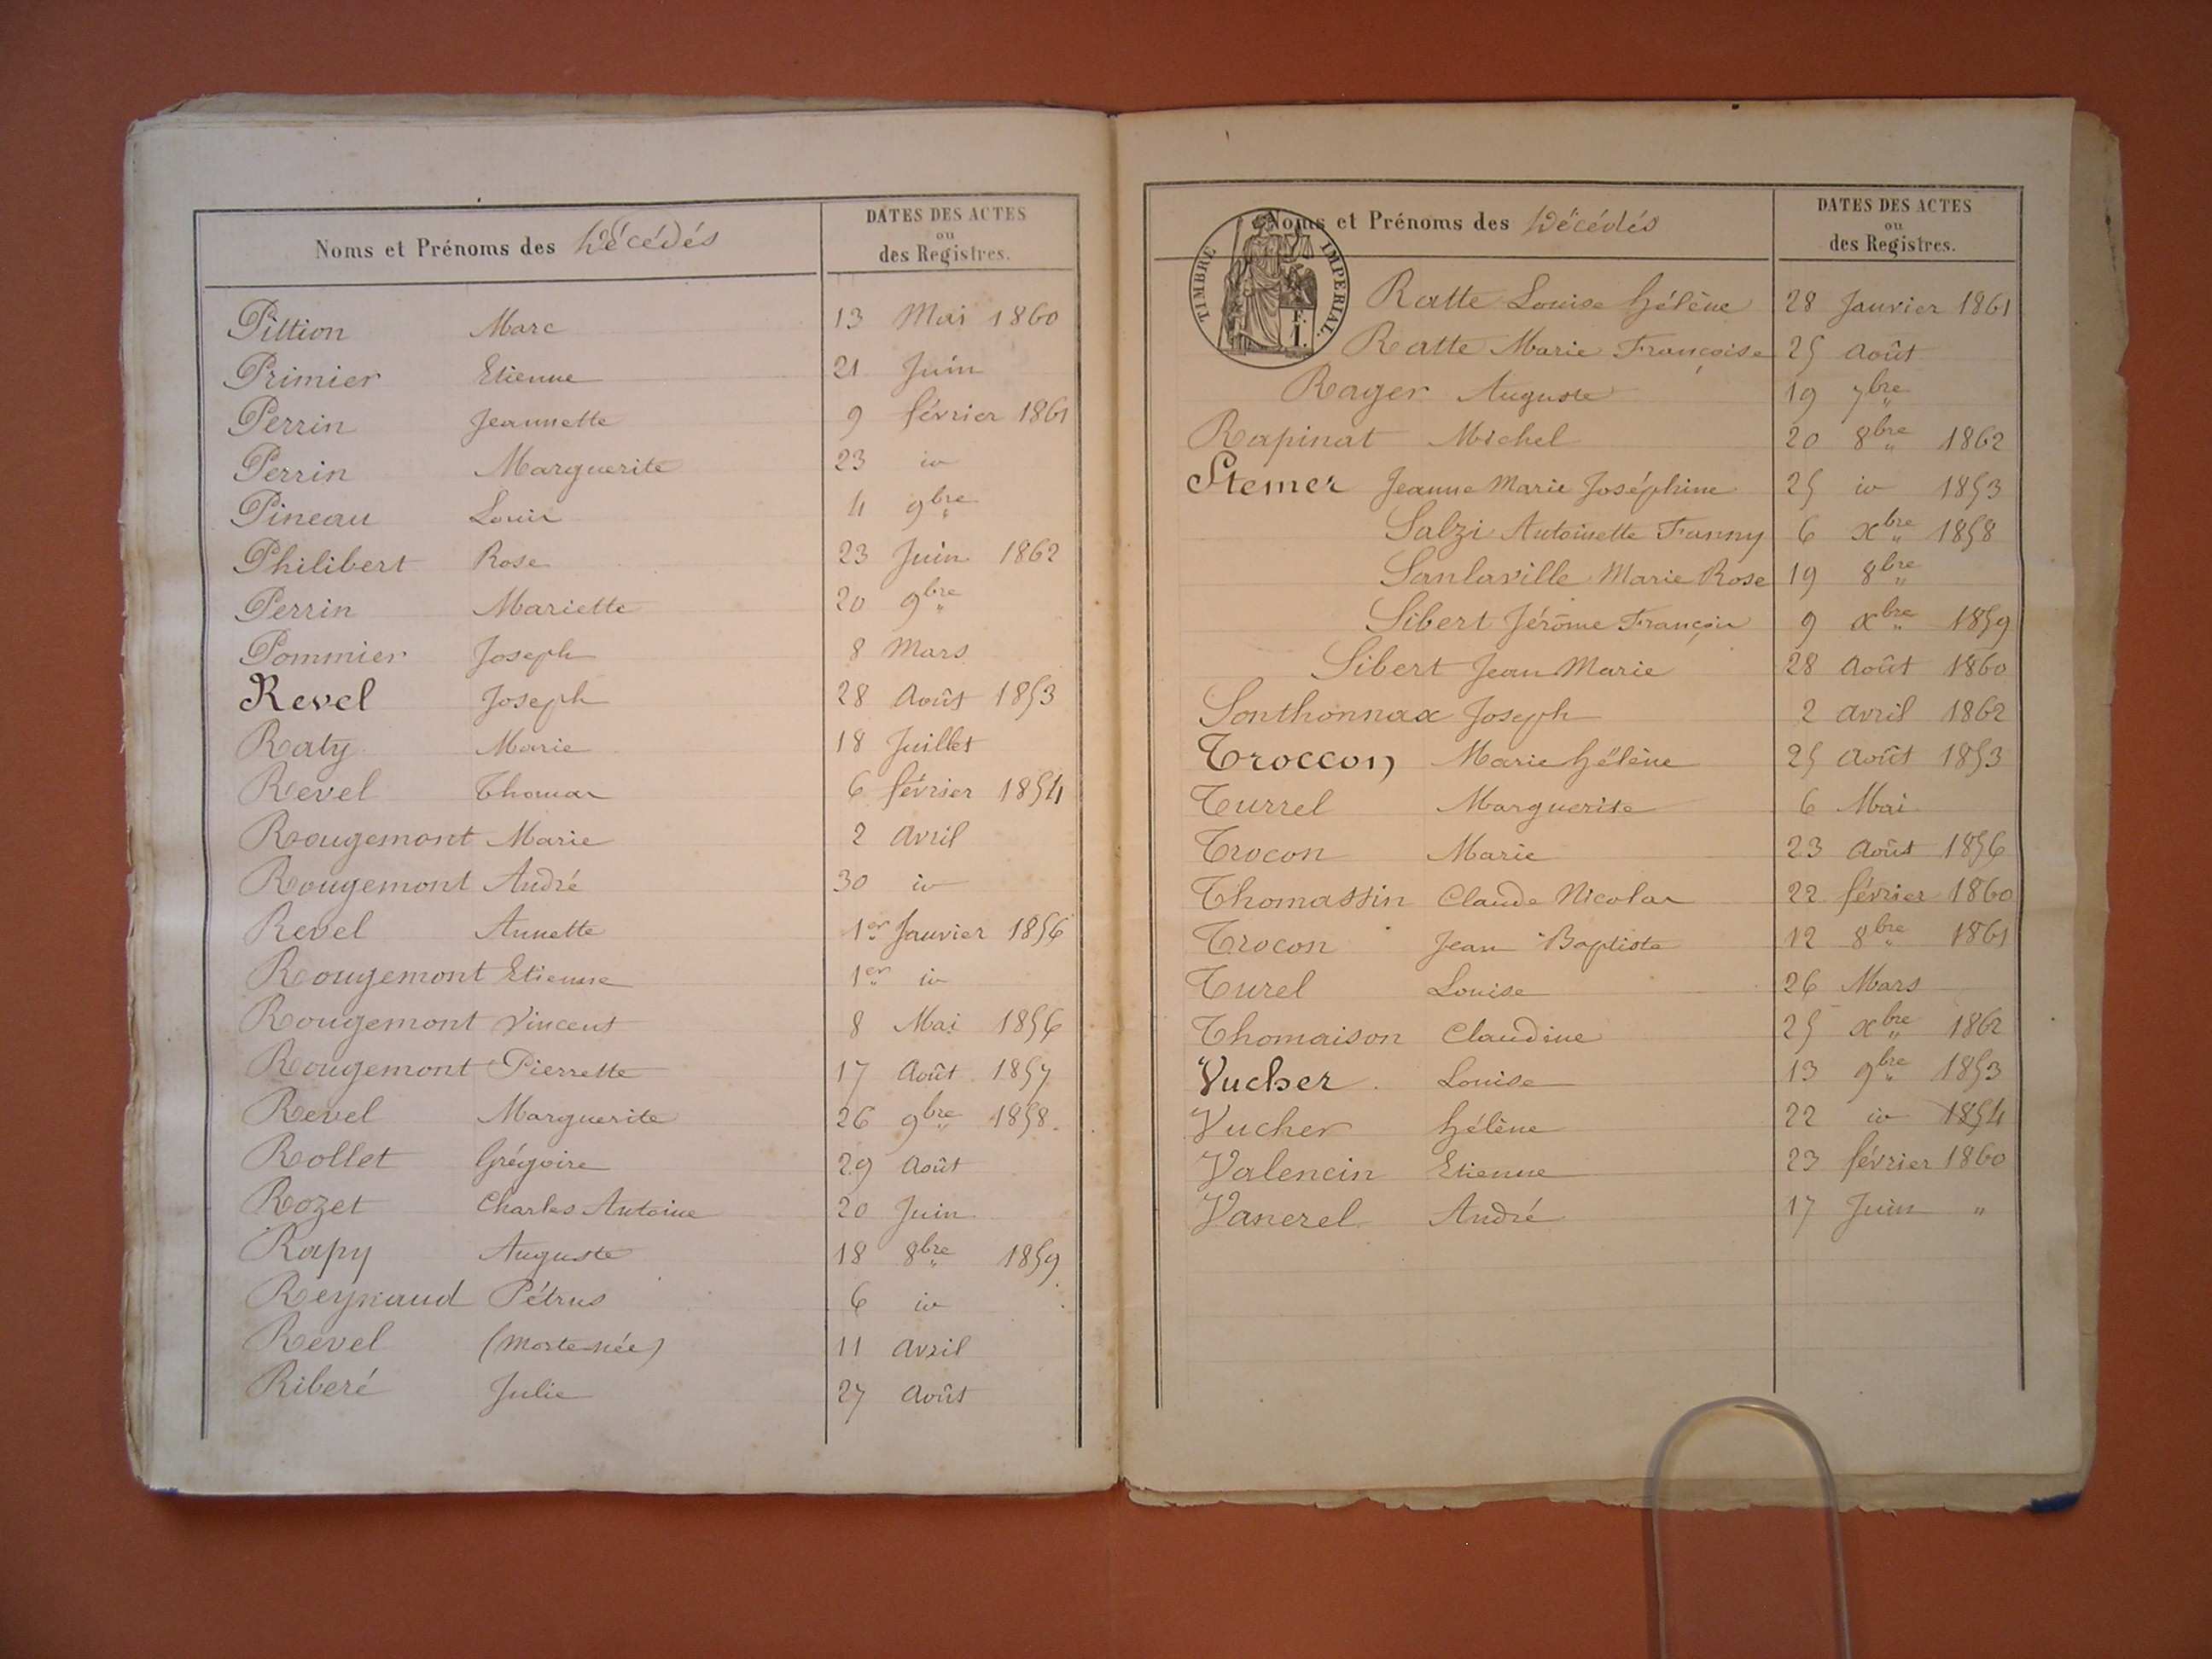 Noms et Prénoms des Décédés
DATES DES ACTES
ou
des Registres.
Pittion Marc 13 Mai 1860
Primier Etienne 21 Juin
Perrin Jeannette 9 février 1861
Perrin Marguerite 23 id
Pineau Louis 4 9bre
Philibert Rose 23 Juin 1862
Perrin Mariette 20 9bre
Pommier Joseph 8 Mars
Revel Joseph 28 Août 1853
Raty Marie 18 Juillet
Revel Thomas 6 février 1854
Rougemont Marie 2 Avril
Rougemont André 30 id
Revel Annette 1er Janvier 1856
Rougemont Etienne 1er id
Rougemont Vincent 8 Mai 1856
Rougemont Pierrette 17 Août 1857
Revel Marguerite 26 9bre 1858.
Rollet Grégoire 29 Août
Rozet Charles Antoine 20 Juin
Rapy Auguste 18 8bre 1859
Reynaud Pétrus 6 id
Revel (Morte-née) 11 Avril
Riberé Julie 27 Août
Noms et Prénoms des Décédés
DATES DES ACTES
ou
des Registres.
TIMBRE IMPERIAL.
F.
1.
Ratte Louise Hélène 28 Janvier 1861
Ratte Marie Françoise 25 Août
Rager Auguste 19 7bre
Rapinat Michel 20 8bre 1862
Stemer Jeanne Marie Joséphine 25 id 1853
Salzi Antoinette Fanny 6 xbre 1858
Sanlaville Marie Rose 19 8bre
Sibert Jérôme François 9 xbre 1859
Sibert Jean Marie 28 Août 1860
Sonthonnax Joseph 2 Avril 1862
Troccon Marie Hélène 25 Août 1853
Turrel Marguerite 6 Mai
Trocon Marie 23 Août 1856
Thomassin Claude Nicolas 22 février 1860
Trocon Jean Baptiste 12 8bre 1861
Turel Louise 26 Mars
Thomaison Claudine 25 xbre 1862
Vucher Louise 13 9bre 1853
Vucher Hélène 22 id 1854
Valencin Etienne 23 février 1860
Vanerel André 17 Juin "